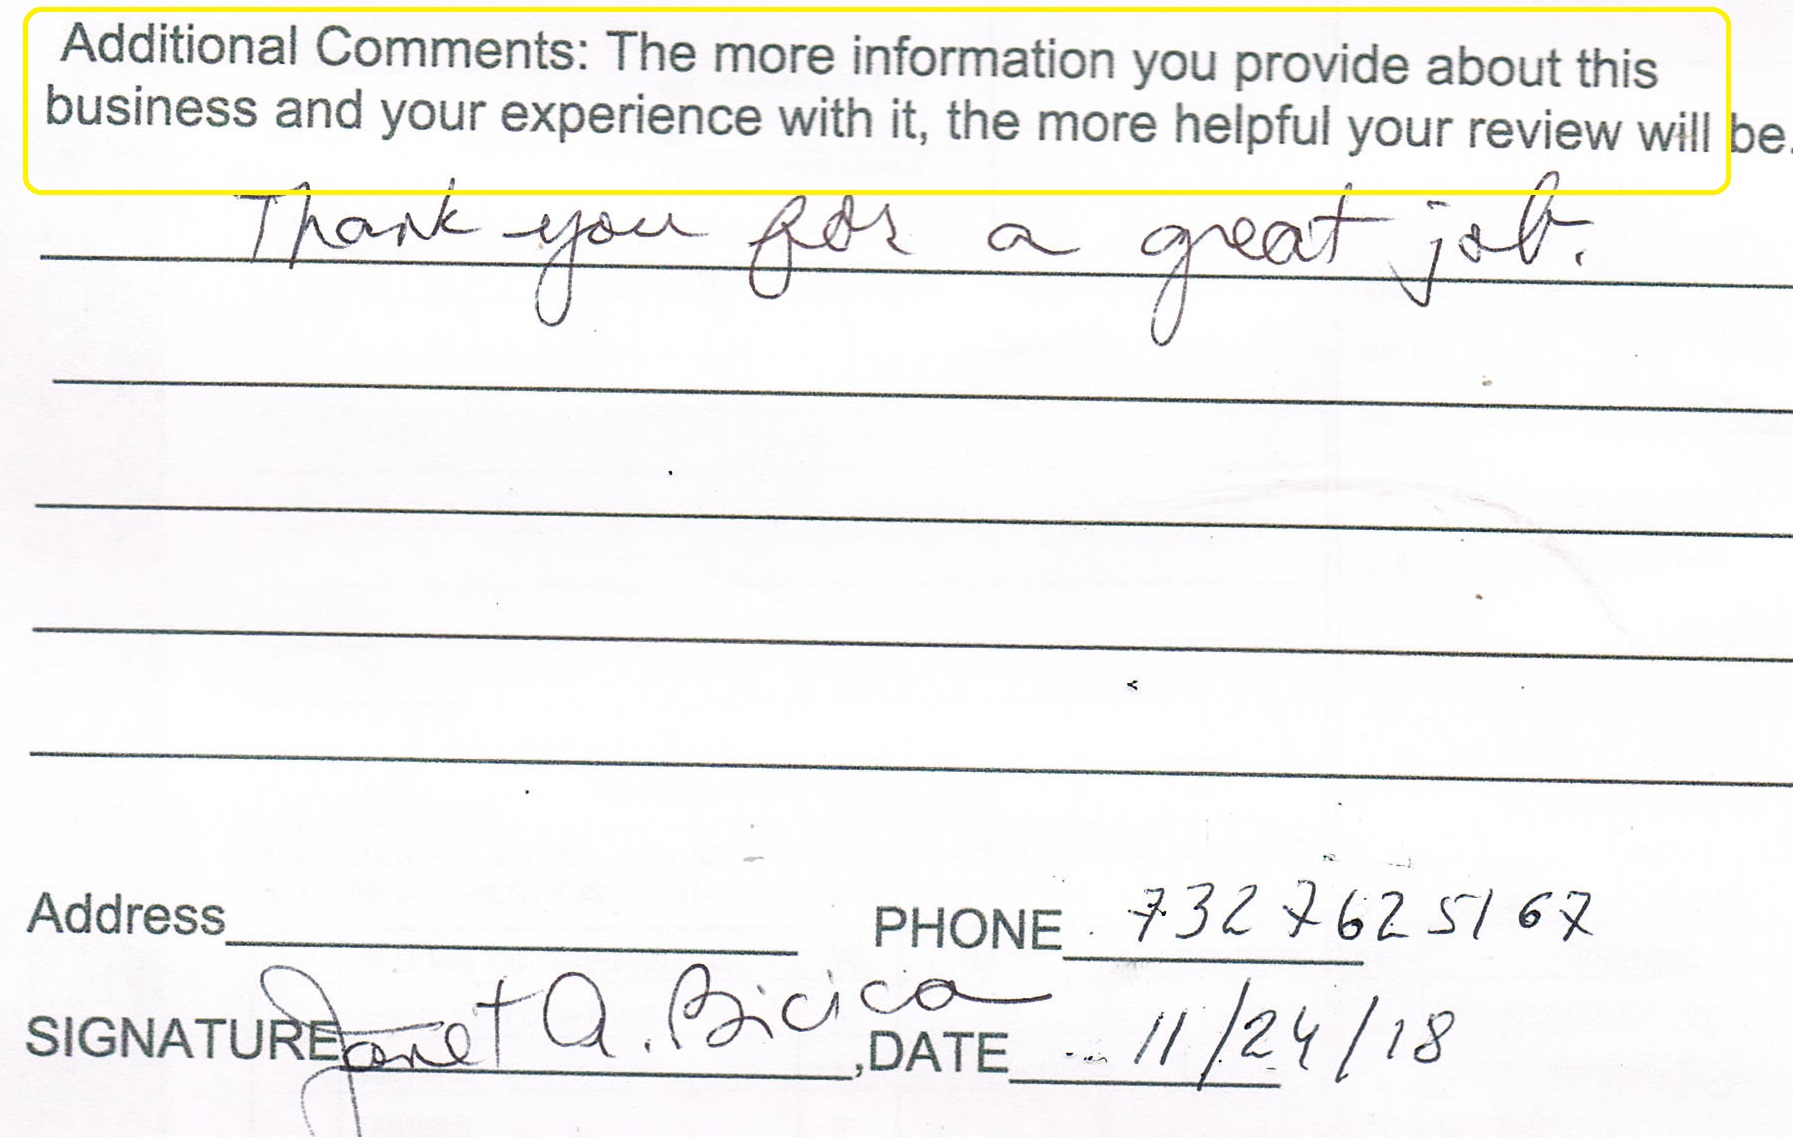 Additional Comments: The more information you provide about this
business and your experience with it, the more helpful your review will be.
Thank you for a great job.
Address PHONE 732 762 5167
SIGNATURE Janet A. Bicica ,DATE 11/24/18